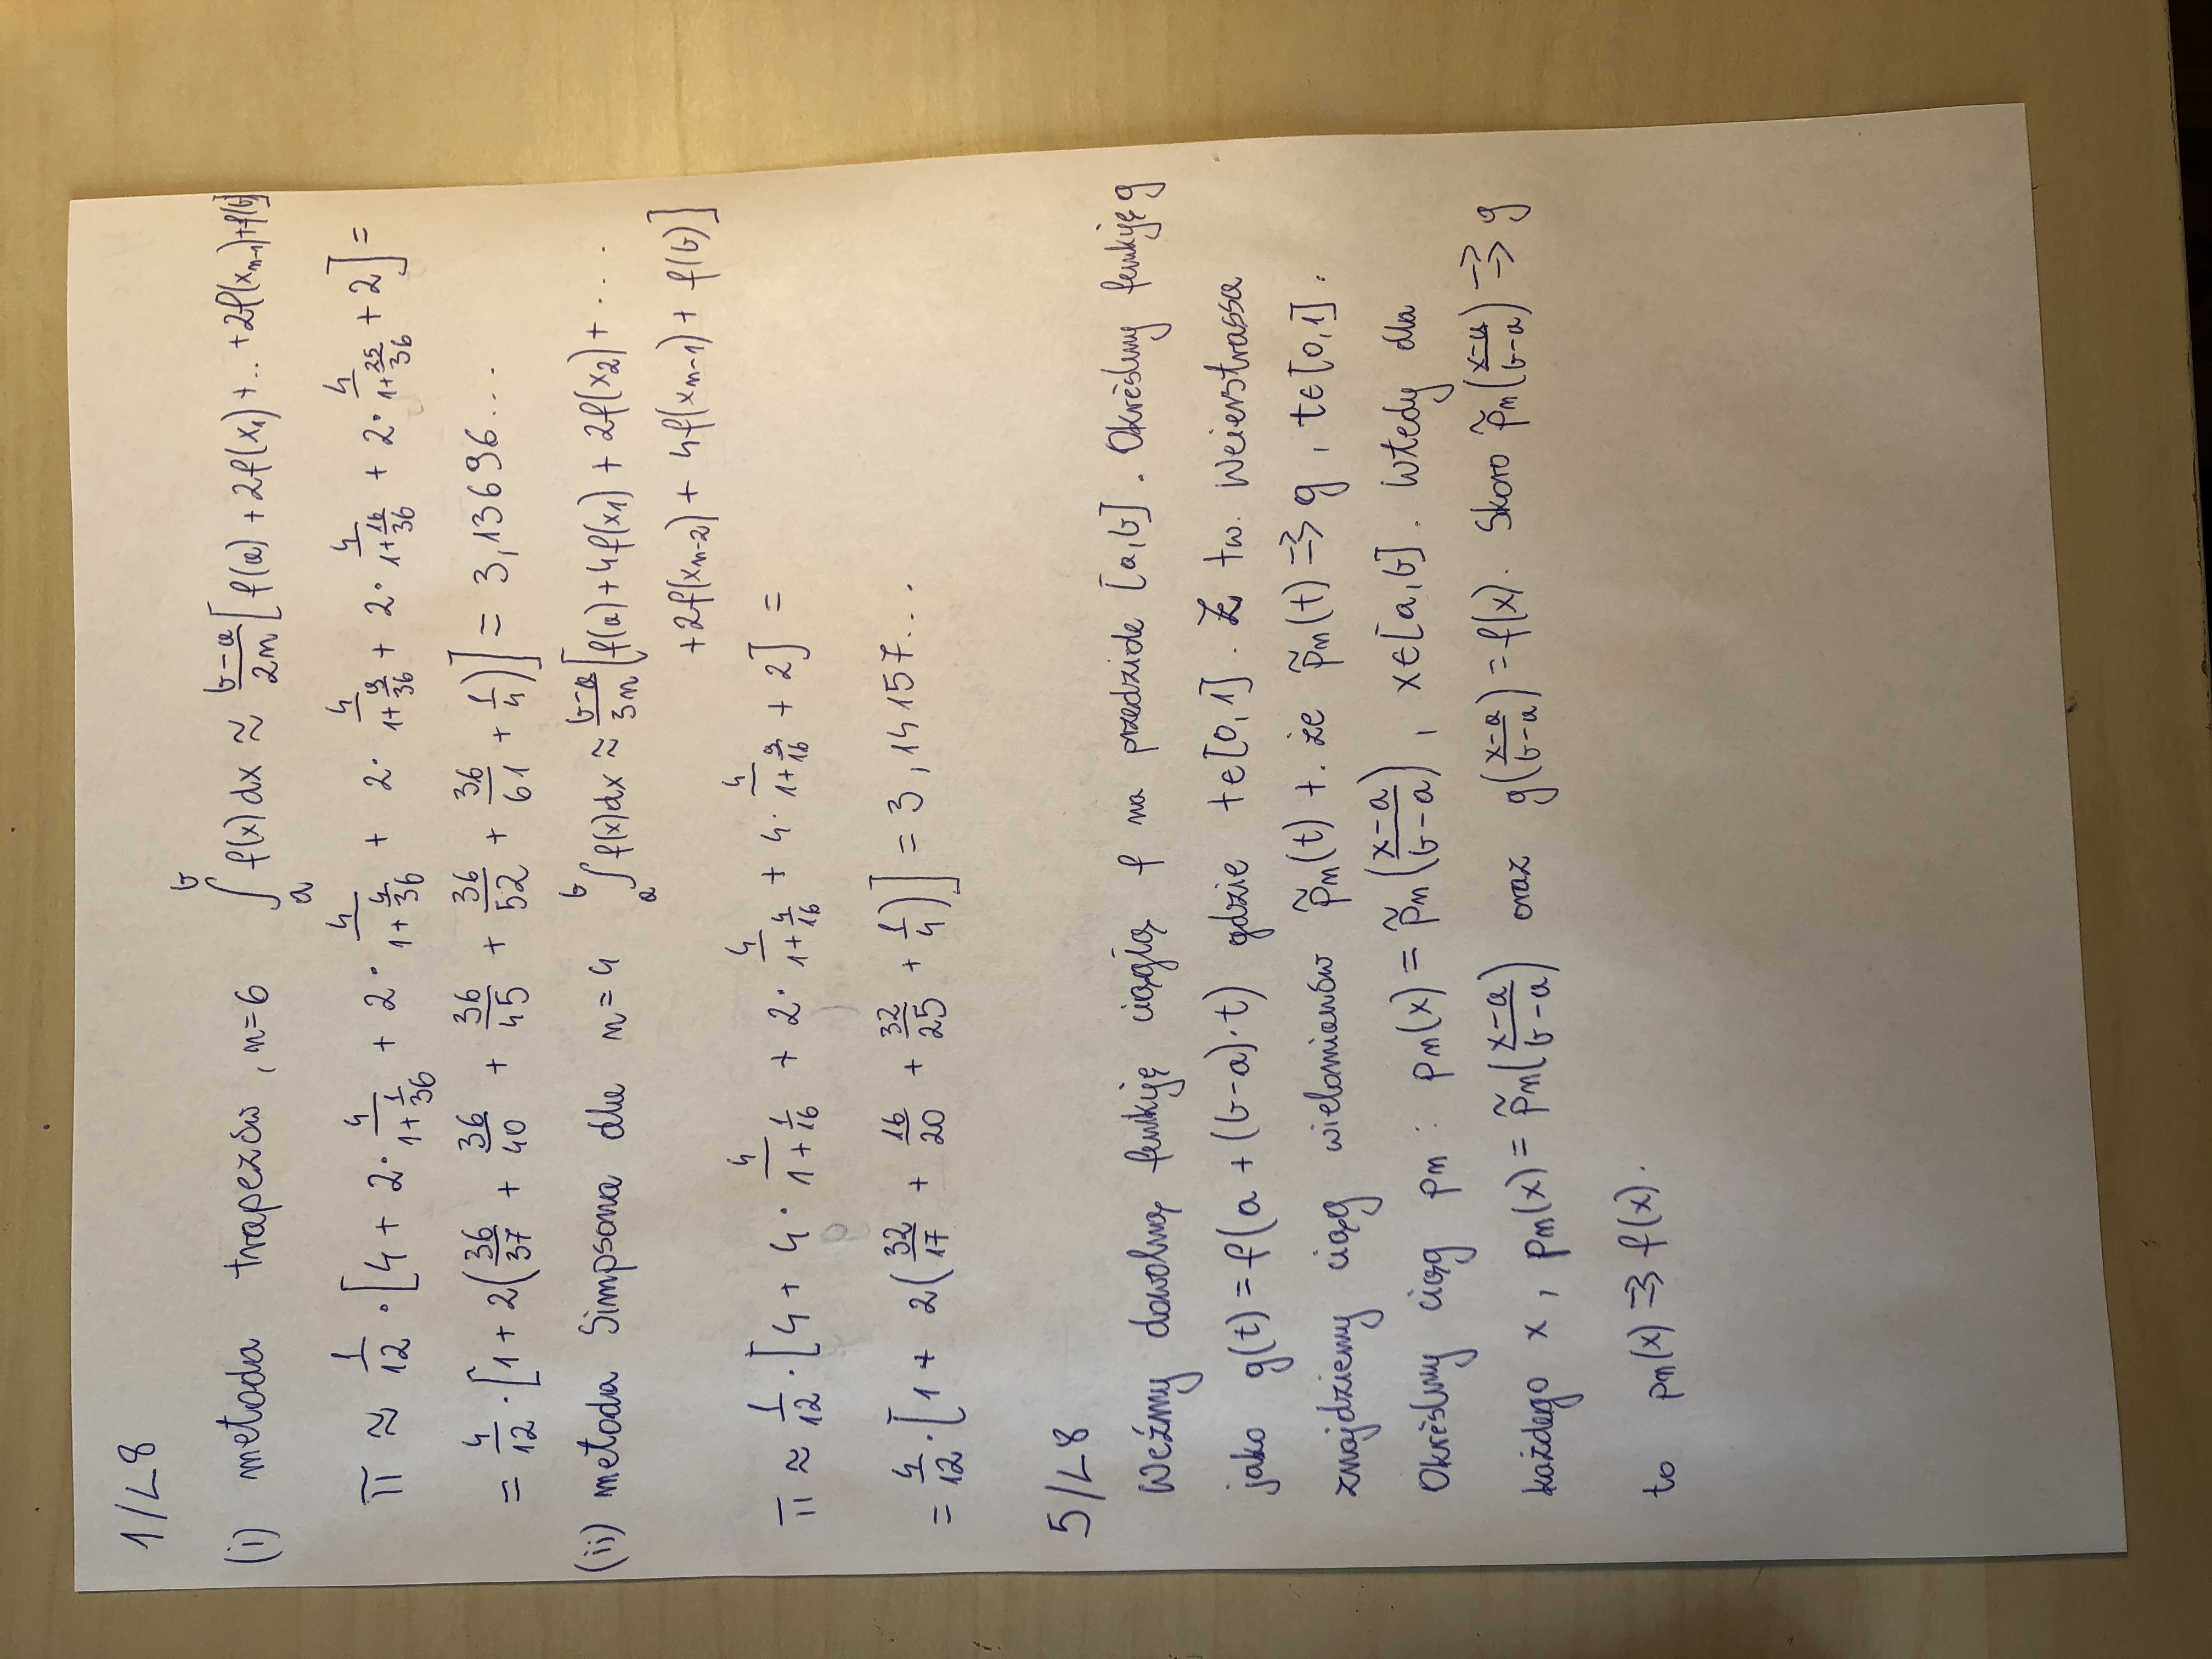 1/L8
(i) metoda trapezów, n=6 ∫_a^b f(x)dx ≈ \frac{b-a}{2n}[f(a) + 2f(x_1) + .. + 2f(x_{n-1}) + f(b)]
π ≈ \frac{1}{12} · [4 + 2 · \frac{4}{1+\frac{1}{36}} + 2 · \frac{4}{1+\frac{4}{36}} + 2 · \frac{4}{1+\frac{9}{36}} + 2 · \frac{4}{1+\frac{16}{36}} + 2 · \frac{4}{1+\frac{25}{36}} + 2] =
= \frac{4}{12} · [1 + 2(\frac{36}{37} + \frac{36}{40} + \frac{36}{45} + \frac{36}{52} + \frac{36}{61} + \frac{1}{4})] = 3,13696...
(ii) metoda Simpsona dla n=4 ∫_a^b f(x)dx ≈ \frac{b-a}{3n}[f(a) + 4f(x_1) + 2f(x_2) + ....
+ 2f(x_{n-2}) + 4f(x_{n-1}) + f(b)]
π ≈ \frac{1}{12} · [4 + 4 · \frac{4}{1+\frac{1}{16}} + 2 · \frac{4}{1+\frac{4}{16}} + 4 · \frac{4}{1+\frac{9}{16}} + 2] =
= \frac{4}{12} · [1 + 2(\frac{32}{17} + \frac{16}{20} + \frac{32}{25} + \frac{1}{4})] = 3,14157...
5/L8
Weźmy dowolną funkcję ciągłą f na przedziale [a,b]. Określmy funkcję g
jako g(t) = f(a + (b-a)·t) gdzie t∈[0,1]. Z tw. Weierstrassa
znajdziemy ciąg wielomianów p̃_n(t) t. że p̃_n(t) ⇉ g, t∈[0,1].
Określmy ciąg p_n : p_n(x) = p̃_n(\frac{x-a}{b-a}), x∈[a,b]. Wtedy dla
każdego x, p_n(x) = p̃_n(\frac{x-a}{b-a}) oraz g(\frac{x-a}{b-a}) = f(x). Skoro p̃_n(\frac{x-a}{b-a}) ⇉ g
to p_n(x) ⇉ f(x).